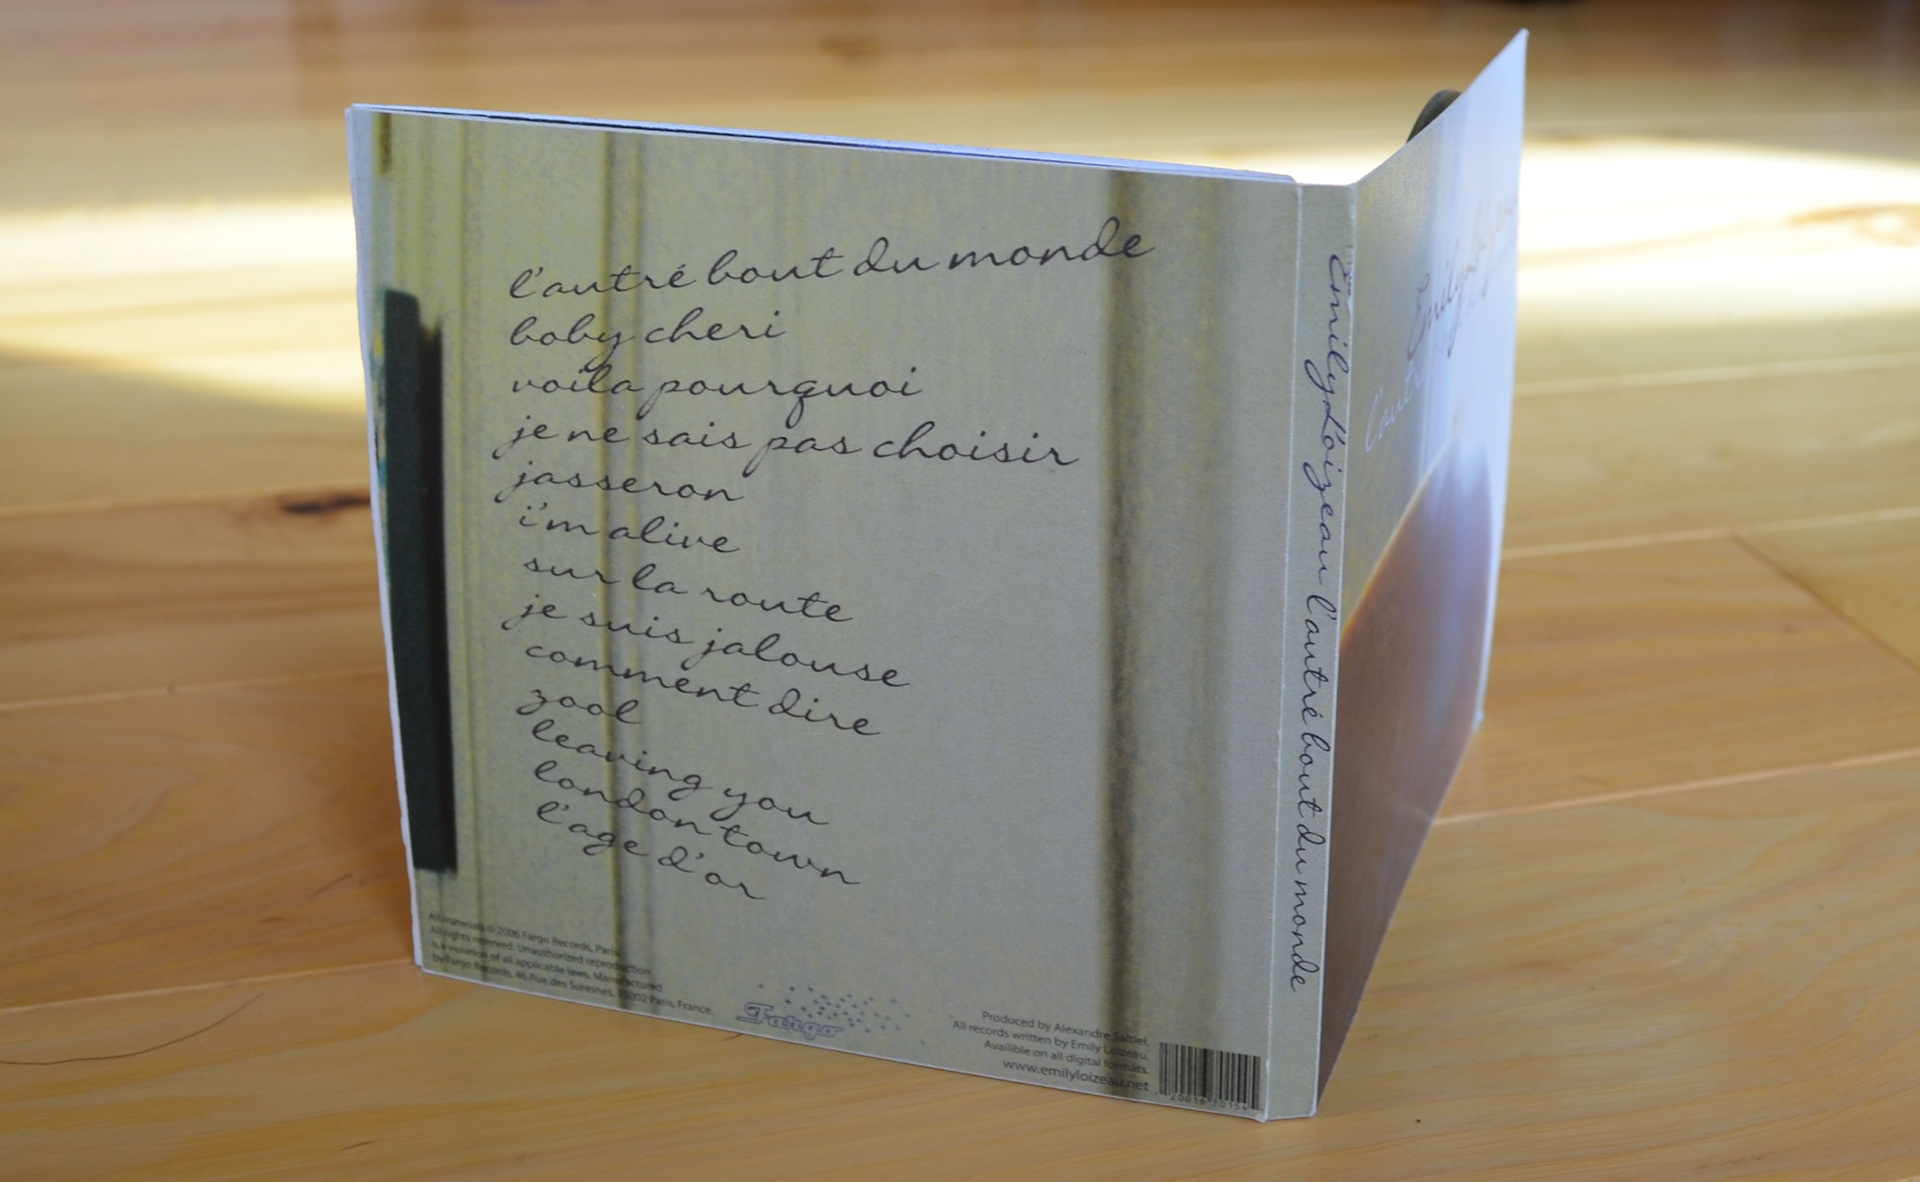 l'autré bout du monde
boby cheri
voila pourquoi
je ne sais pas choisir
jasseron
i'm alive
sur la route
je suis jalouse
comment dire
zool
leaving you
london town
l'age d'or
All materials © 2006 Fargo Records, Paris.
All rights reserved. Unauthorized reproduction
is a violation of all applicable laws. Manufactured
by Fargo Records, 46 Rue des Suresnes, 75002 Paris, France.
Fargo
Produced by Alexandre Saltiel.
All records written by Emily Loizeau.
Availible on all digital formats.
www.emilyloizeau.net
Emily Loizeau l'autré bout du monde
Emily
l'autré